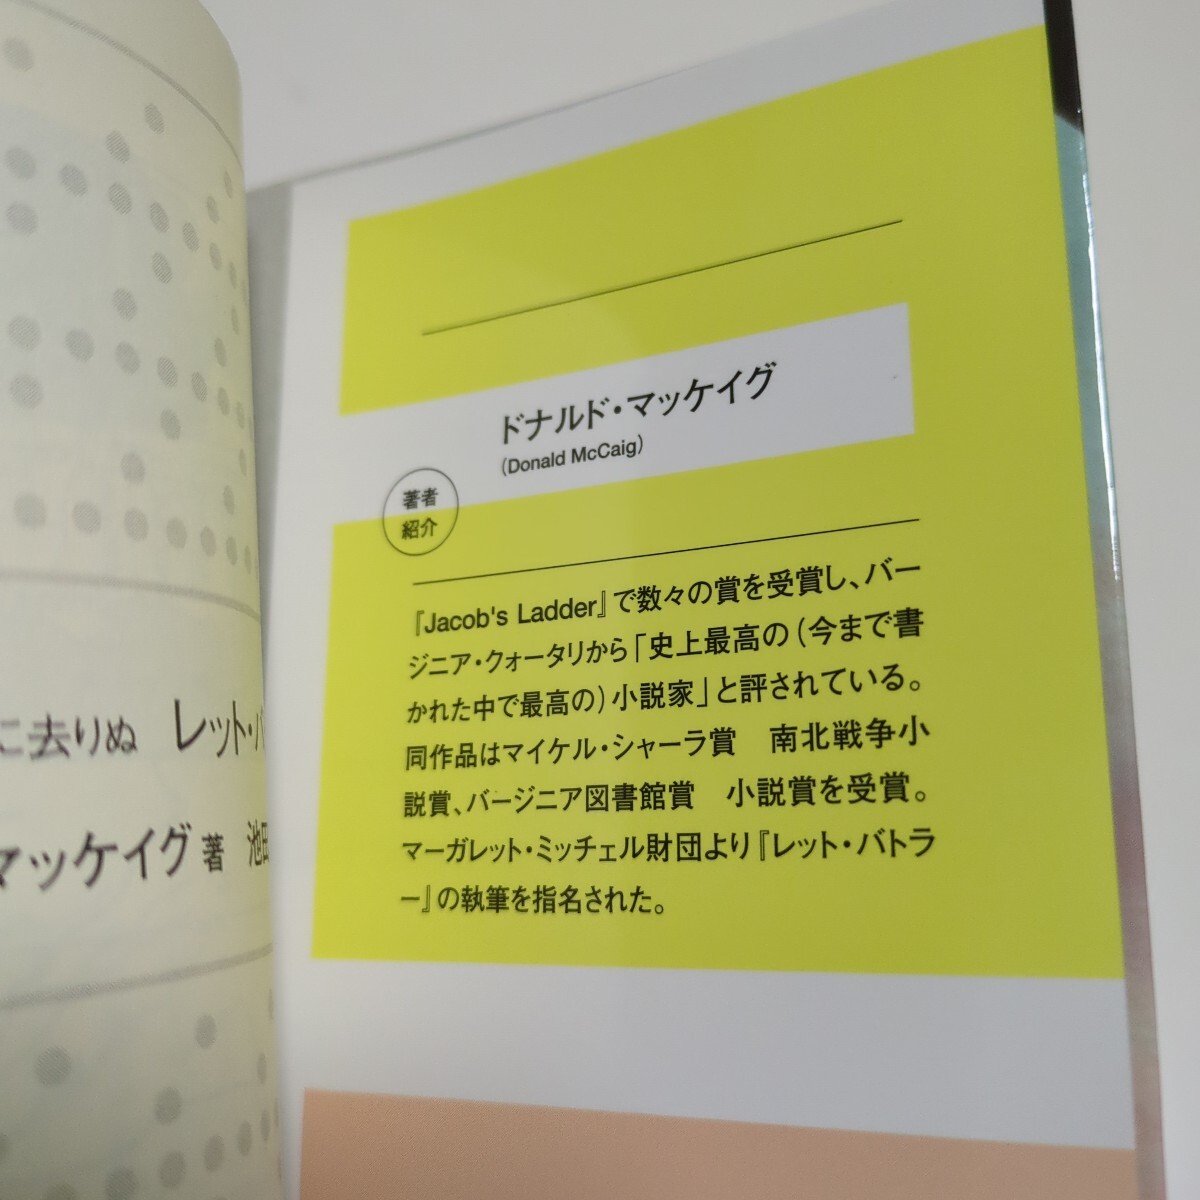 に去りぬ レット・バ
マッケイグ 著 池田
ドナルド・マッケイグ
(Donald McCaig)
著者
紹介
『Jacob's Ladder』で数々の賞を受賞し、バー
ジニア・クォータリから「史上最高の(今まで書
かれた中で最高の)小説家」と評されている。
同作品はマイケル・シャーラ賞　南北戦争小
説賞、バージニア図書館賞　小説賞を受賞。
マーガレット・ミッチェル財団より『レット・バトラ
ー』の執筆を指名された。